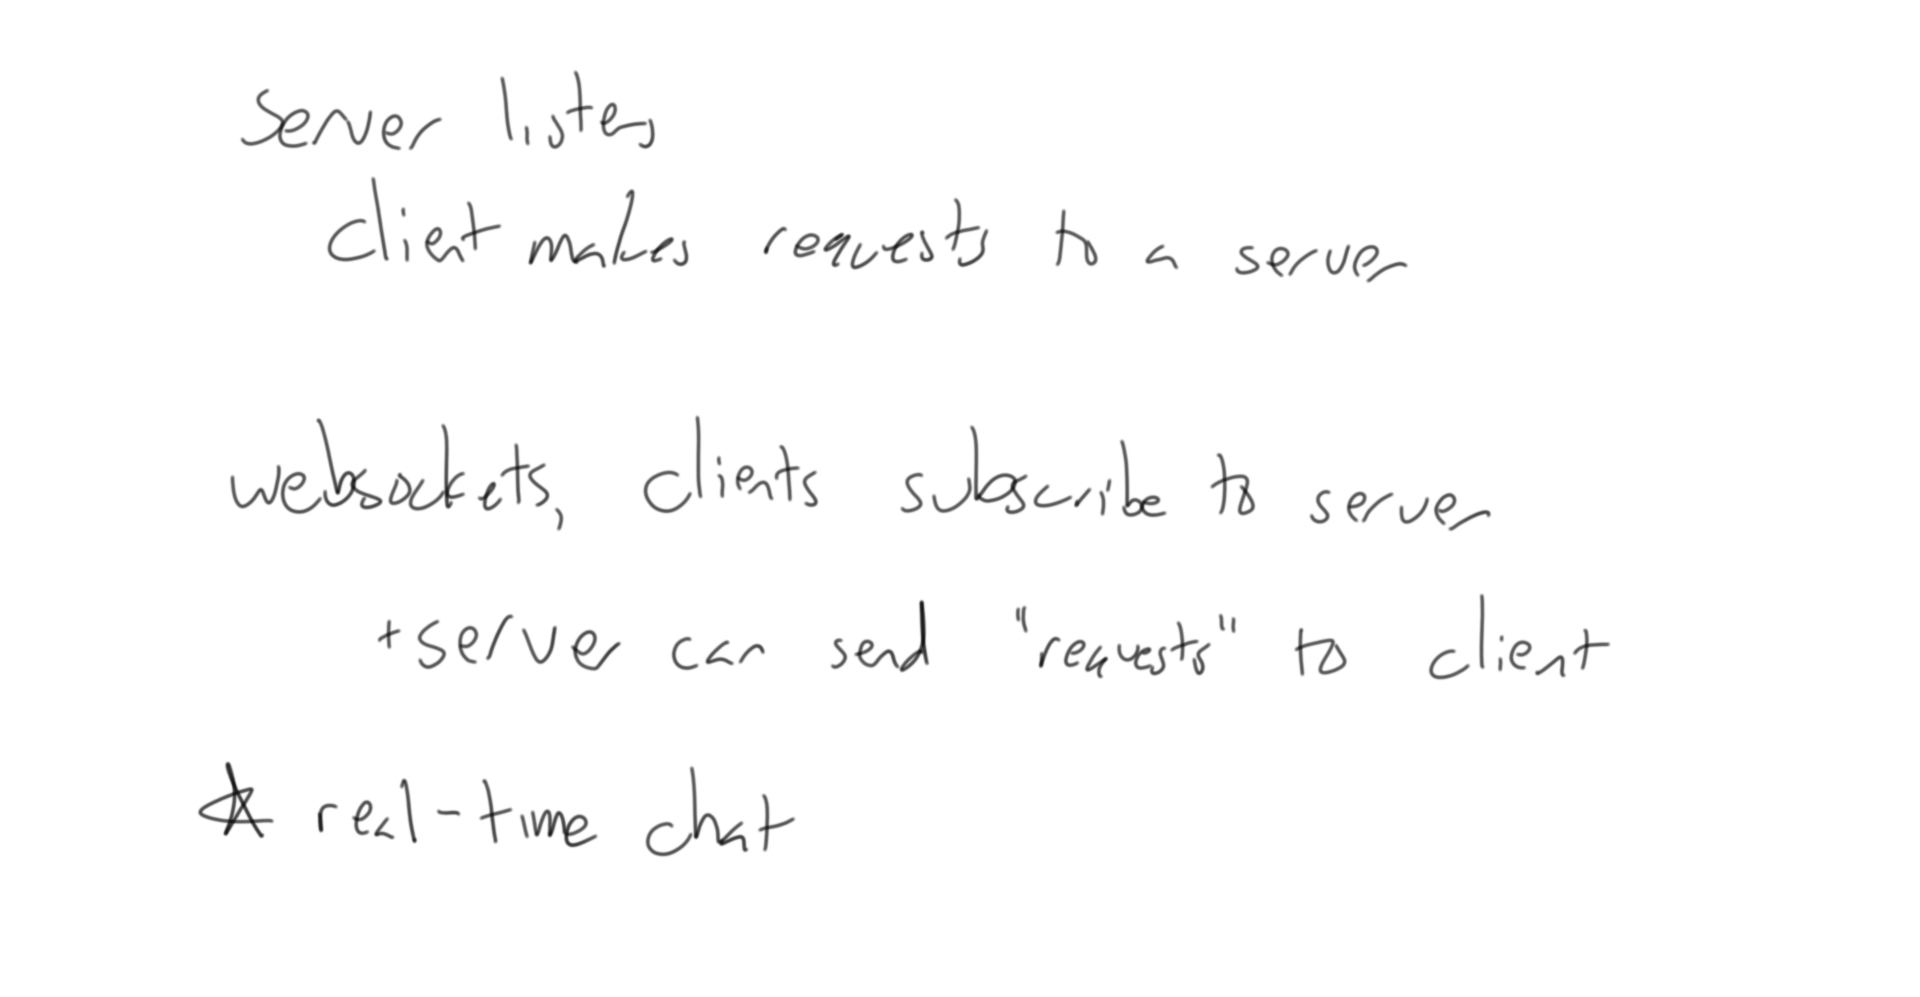 Server listens
client makes requests to a server
websockets, clients subscribe to server
+ server can send "requests" to client
☆ real-time chat